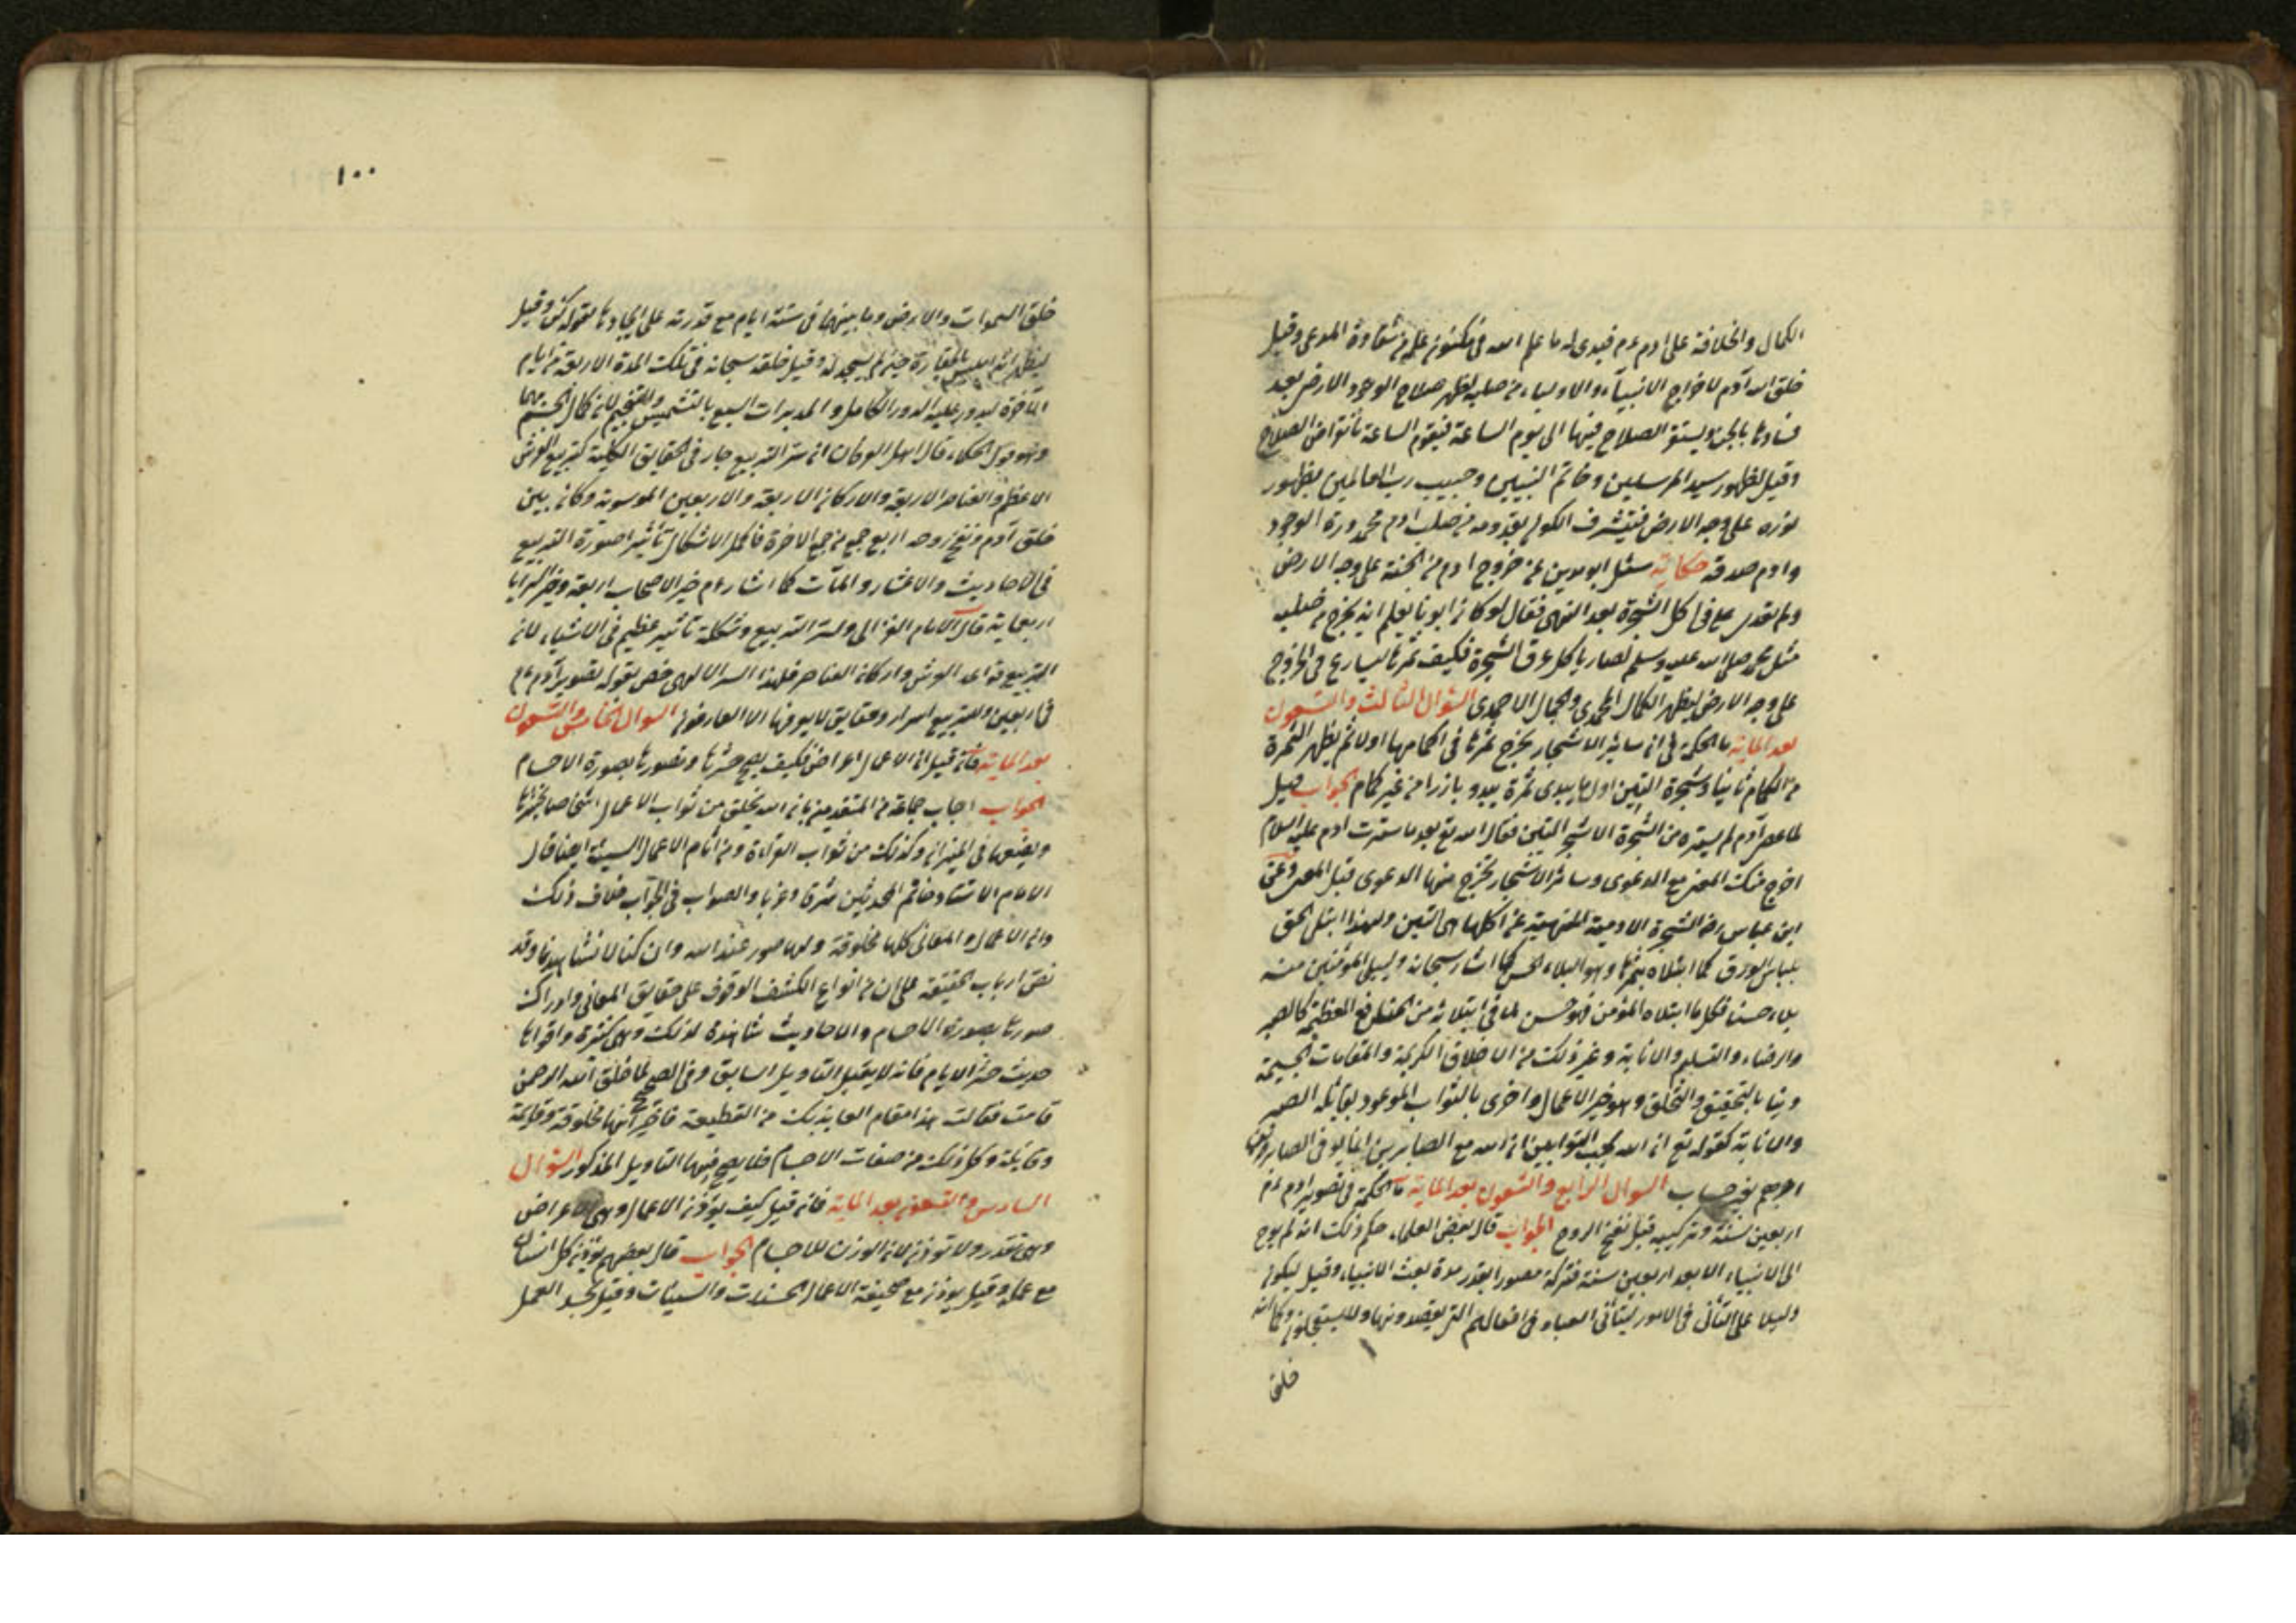 الكمال والخلافة على ادم عم فيبدى له ما علم الله فى مكنون علمه من شقاوة المدعى وقيل
خلق الله آدم لاخراج الانبيآء والاولياء من صلبه ليظهر صلاح الوجود الارض بعد
فسادها بالجن ويستقر الصلاح فيها الى يوم الساعة فيقوم الساعة بانقراض الصلاح
وقيل لظهور سيد المرسلين وخاتم النبيين وحبيب رب العالمين بظهور
نوره على وجه الارض فيتشرف الكون بقدومه من صلب ادم محمد درة الوجود
وادم صدفه حكاية سئل ابو مدين عن خروج ادم من الجنة على وجه الارض
ولم تعدى على فى اكل الشجرة بعد النهى فقال لو كان ابونا يعلم انه يخرج من صلبه
مثل محمد صلى الله عليه وسلم لصار ياكل عرق الشجرة فكيف ثمرها ليسارع فى الخروج
على وجه الارض ليظهر الكمال المحمدى والجمال الاحمدى السؤال الثالث والتسعون
بعد الماية ما الحكمة فى ان سائر الاشجار يخرج ثمرها فى اكمامها اولا ثم يظهر الثمرة
من الكمام ثانيا وشجرة التين اول ما يبدى ثمرة يبدو بارزا من غير كمام الجواب قيل
لما عصى آدم لم يستره من الشجرة الا شجر التين فقال الله تع بعد ما سترت ادم عليه السلام
اخرج منك المعنى مع الدعوى وسائر الاشجار يخرج منها الدعوى قبل المعنى وعن
ابن عباس رضه الشجرة الادمية المنهية عن اكلها هى التين ولهذا ابتلى الحق
بلباس الورق كما ابتلاه بثمرها وهو البلاء الحسن كما اشار سبحانه وليبلى المؤمنين منه
بلاء حسنا فكل ما ابتلاه المؤمن فهو حسن لما فى ابتلائه من المنافع العظيمة كالصبر
والرضاء والتسليم والانابة وغير ذلك من الاخلاق الكريمة والمقامات الجسيمة
دنيا بالتحقيق والتخلق وهو خير الاعمال واخرى بالثواب الموعود بمقابلة الصبر
والانابة كقوله تع ان الله يحب التوابين ان الله مع الصابرين انما يوفى الصابرون
اجرهم بغير حساب السوال الرابع والتسعون بعد الماية ما الحكمة فى تصوير ادم عم
اربعين سنة وتركيبه قبل نفخ الروح الجواب قال بعض العلماء حكم ذلك انه لم يوح
الى الانبياء الا بعد اربعين سنة فتركه مصورا بقدر مدة بعث الانبياء وقيل ليكون
دليلا على التأنى فى الامور ليتأنى العباد فى افعالهم التى يقصدونها ولا يستعجلون وكما انه
خلق
١٠٠
خلق السموات والارض وما بينهما فى ستة ايام مع قدرته على ايجادها بقوله كن وقيل
حين لم يسجد له وقيل خلقه سبحانه فى تلك المدة الاربعة من ايام
الآخرة ليدور عليه الدور الكامل والمدبرات السبع بالتشميس والتنجيم لان كمال الجسم بهما
وهو قول الحكماء قال اهل العرفان ان سر التربيع جار فى الحقايق الكلية كتربيع العرش
الاعظم والعناصر الاربعة والاركان الاربعة والاربعين الموسوية وكان بين
خلق آدم ونفخ روحه اربع جمع من جمع الاخرة فاكمل الاشكال تأثيرا صورة التربيع
فى الاحاديث والاعشار والمآت كما اشار عم خير الاصحاب اربعة وخير السرايا
اربعماية قال الامام الغزالى ولسر التربيع وشكله تأثير عظيم فى الاشياء لان
التربيع قواعد العرش واركان العناصر فلهذا السر الالهى خص بقوله تصوير آدم عم
فى اربعين وللتربيع اسرار وحقايق لا يعرفها الا العارفون السوال الخامس والتسعون
بعد الماية فان قيل ان الاعمال اعراض فكيف يصح حشرها وتصورها بصورة الاجسام
الجواب اجاب جماعة من المتقدمين بان الله يخلق من ثواب الاعمال اشخاصا يحشرها
ويضعها فى الميزان وكذلك من ثواب القراءة ومن آثام الاعمال السيئة ايضا قال
الامام الاستاد خاتم المحدثين شرقا وغربا والصواب فى الجواب خلاف ذلك
وان الاعمال والمعانى كلها مخلوقة ولها صور عند الله وان كنا لا نشاهدها وقد
نص ارباب الحقيقة على ان من انواع الكشف الوقوف على حقايق المعانى وادراك
صورها بصورة الاجسام والاحاديث شاهدة لذلك وهى كثيرة واقواها
حديث حشر الايام فانه لا يقبل التاويل السابق وفى الصحيح لما خلق الله الرحمن
قامت فقالت هذا مقام العايذ بك من القطيعة فاخبر انها مخلوقة وقايمة
وقايلة وكل ذلك من صفات الاجسام فلا يصح فيها التاويل المذكور السؤال
السادس والتسعون بعد الماية فان قيل كيف يوزن الاعمال وهى اعراض
وهى تقدر ولا توزن لان الوزن للاجسام الجواب قال بعضهم يوزن كل انسان
مع عمله وقيل يوزن مع صحيفة الاعمال الحسنات والسيئات وقيل يجسد العمل